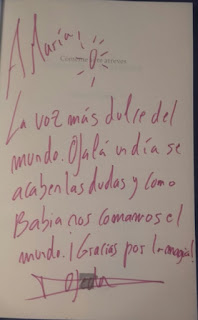 A María,
La voz más dulce del
mundo. Ojalá un día se
acaben las dudas y como
Babia nos comamos el
mundo. ¡Gracias por la magia!